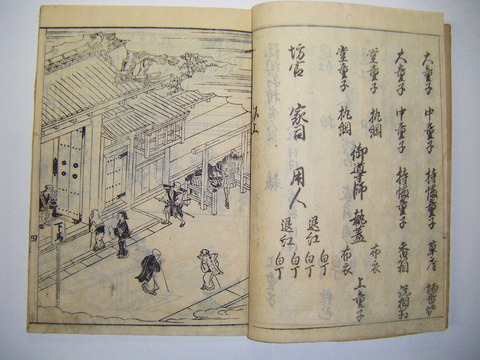 大童子 中童子 持幡童子 草座
大童子 中童子 持幡童子
堂童子 執綱 布衣
御導師 執蓋 上童子
堂童子 執綱 布衣
退紅 白丁 白丁
坊官 家司 用人
退紅 白丁 白丁
下馬
四